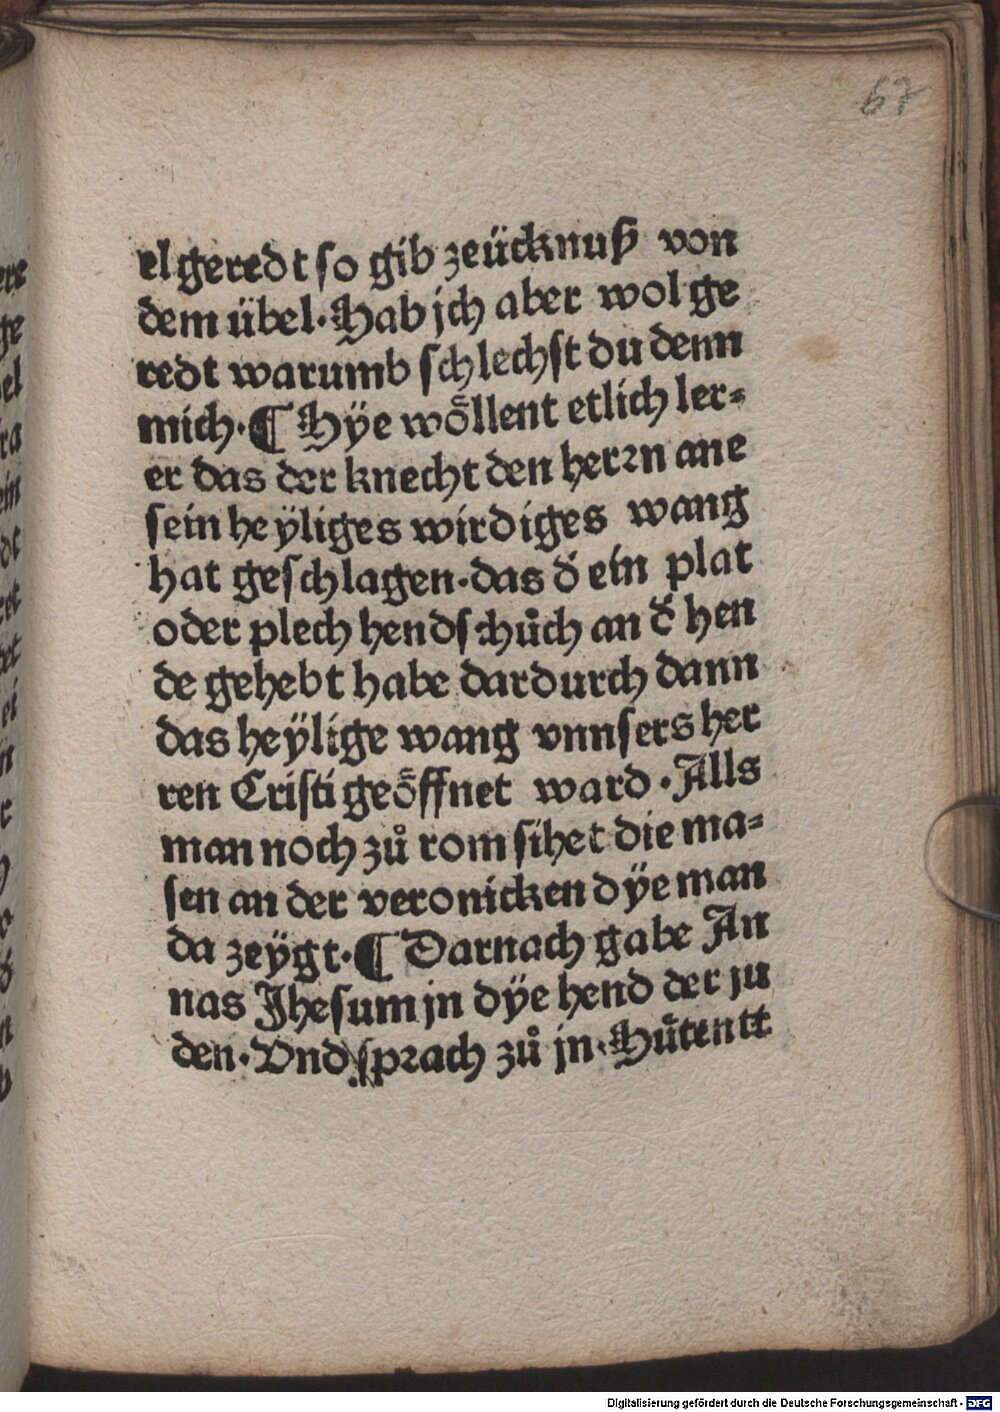 67
el geredt so gib zeücknuß von
dem übel·Hab jch aber wol ge
redt warumb schlechst du denn
mich·¶ Hÿe woͤllent etlich ler⸗
er das der knecht den herꝛn ane
sein heÿliges wirdiges wang
hat geschlagen·das d̛ ein plat
oder plech hendschuͦch an d̛ hen
de gehebt habe dardurch dann
das heÿlige wang vnnsers her
ren Cristi geoͤffnet ward·Alls
man noch zuͦ rom sihet die ma⸗
sen an der veronicken dÿe man
da zeÿgt·¶ Darnach gabe An
nas Jhesum jn dÿe hend der ju
den·Vnd spꝛach zuͦ jn·Huͤtentt
Digitalisierung gefördert durch die Deutsche Forschungsgemeinschaft - DFG